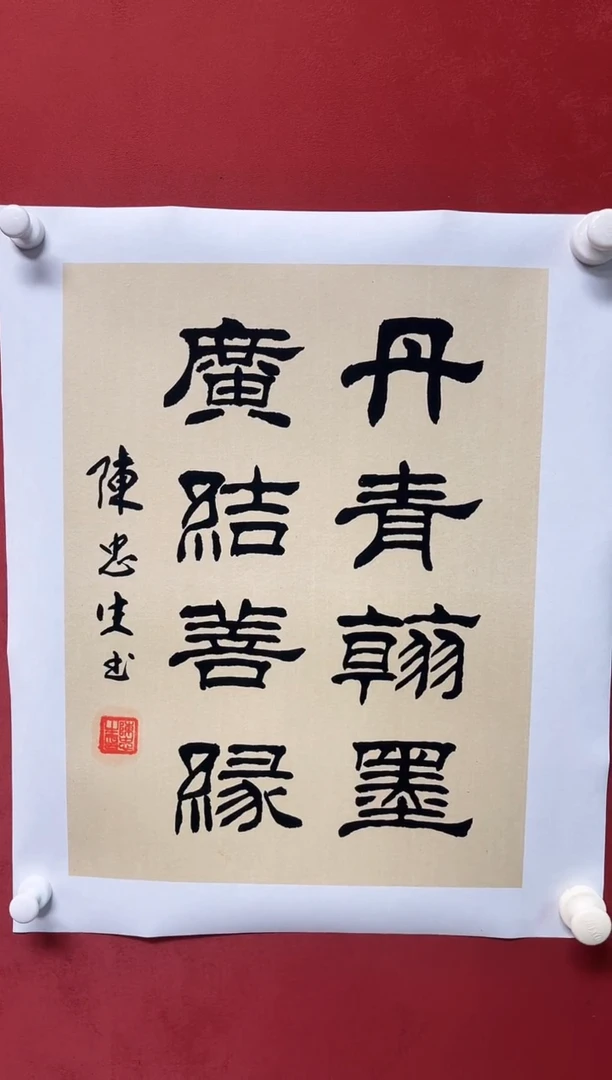 丹青翰墨
廣結善緣
陳忠生书